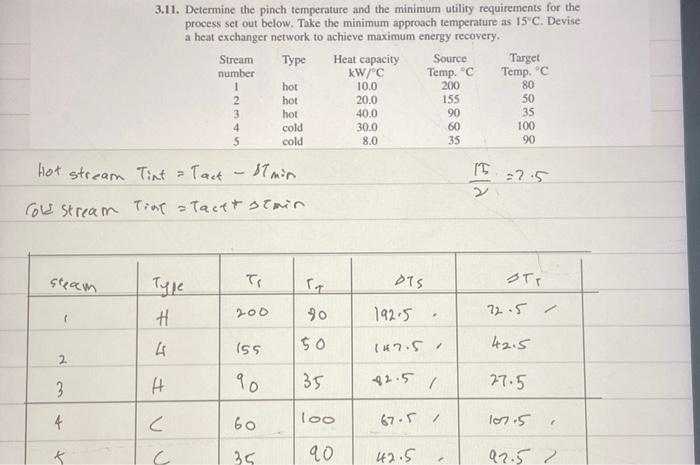 3.11. Determine the pinch temperature and the minimum utility requirements for the
process set out below. Take the minimum approach temperature as 15°C. Devise
a heat exchanger network to achieve maximum energy recovery.
Stream Type Heat capacity Source Target
number kW/°C Temp. °C Temp. °C
1 hot 10.0 200 80
2 hot 20.0 155 50
3 hot 40.0 90 35
4 cold 30.0 60 100
5 cold 8.0 35 90
Hot stream Tint = Tact - ΔTmin
15/2 = 7.5
Cold stream Tint = Tact + ΔTmin
stream Type Ts TT ΔTS ΔTT
1 H 200 80 192.5 72.5
2 H 155 50 147.5 42.5
3 H 90 35 82.5 27.5
4 C 60 100 67.5 107.5
5 C 35 90 42.5 97.5